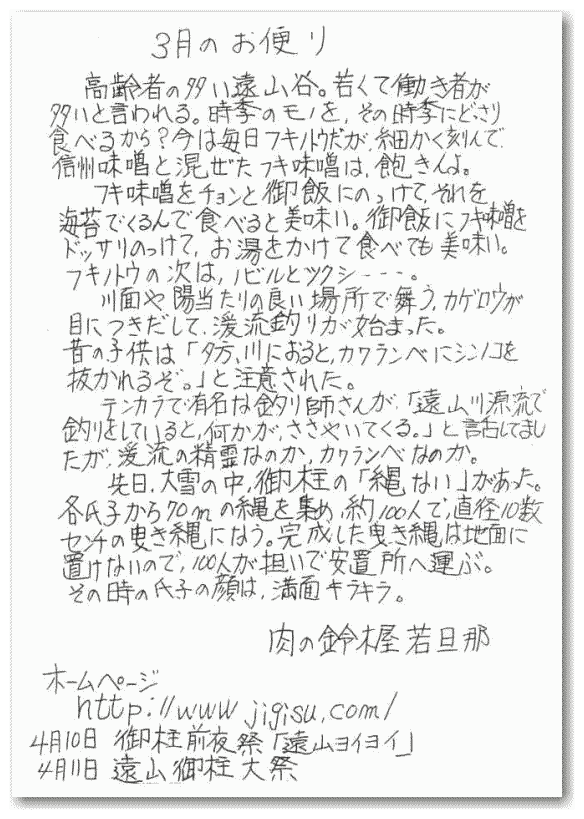 3月のお便り
高齢者の多い遠山谷。若くて働き者が
多いと言われる。時季のモノを、その時季にどさり
食べるから?今は毎日フキノトウだが、細かく刻んで、
信州味噌と混ぜたフキ味噌は、飽きんよ。
フキ味噌をチョンと御飯にのっけて、それを
海苔でくるんで食べると美味い。御飯にフキ味噌を
ドッサリのっけて、お湯をかけて食べても美味い。
フキノトウの次は、ノビルとツクシ---。
川面や陽当たりの良い場所で舞う、カゲロウが
目につきだして、渓流釣りが始まった。
昔の子供は「夕方、川におると、カワランベにシンノコを
抜かれるぞ。」と注意された。
テンカラで有名な釣り師さんが、「遠山川源流で
釣りをしていると、何かが、ささやいてくる。」と話してまし
たが、渓流の精霊なのか、カワランベなのか。
先日、大雪の中、御柱の「縄ない」があった。
各氏子から70mの縄を集め、約100人で、直径10数
センチの曳き縄になう。完成した曳き縄は地面に
置けないので、100人が担いで安置所へ運ぶ。
その時の氏子の顔は、満面キラキラ。
肉の鈴木屋 若旦那
ホームページ
http://www.jigisu.com/
4月10日 御柱前夜祭「遠山ヨイヨイ」
4月11日 遠山御柱大祭